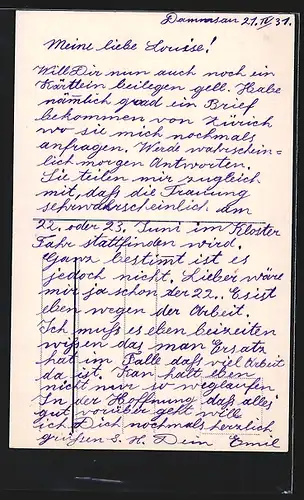 21. IV 31.
Meine liebe Louise!
Will Dir nun auch noch ein
Kärtlein beilegen gell. Habe
nämlich grad ein Brief
bekommen von Zürich
wo sie mich nochmals
anfragen. Werde wahrschein=
lich morgen Antworten.
Sie teilen mir zugleich
mit, daß die Trauung
sehrwahrscheinlich am
22. oder 23. Juni im Kloster
Fahr stattfinden wird.
Ganz bestimt ist es
jedoch nicht. Lieber wäre
mir ja schon der 22.. Es ist
eben wegen der Arbeit.
Ich muß es eben beizeiten
wißen das man Ersatz
hat im Falle daß viel Arbeit
da ist. Kan halt eben
nicht nur so weglaufen
In der Hoffnung daß alles
gut vorüber geht will
ich Dich nochmals herzlich
grüßen s. H. Dein Emil